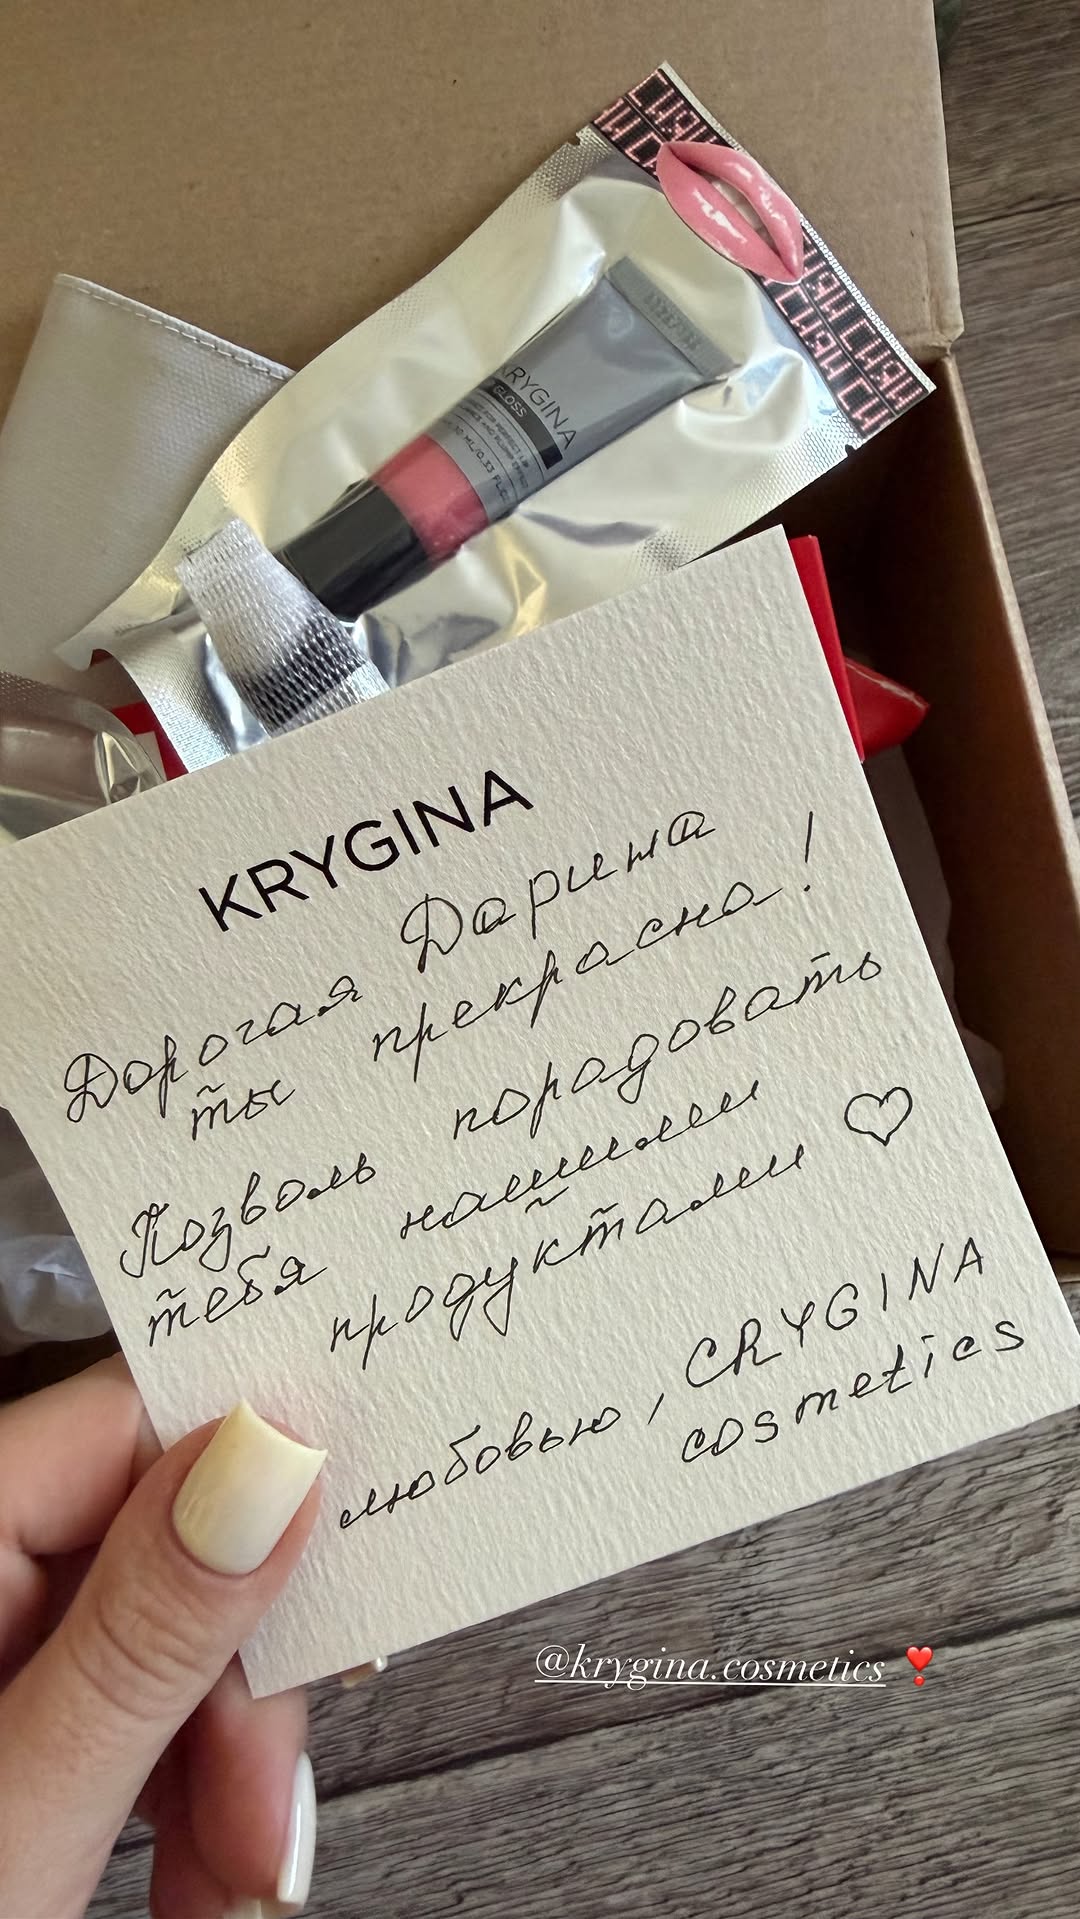 KRYGINA
GLOSS
10 ML/0.33 FL.OZ
KRYGINA
Дорогая Дарина
ты прекрасна!
Позволь порадовать
тебя нашими
продуктами ♡
любовью, CRYGINA
cosmetics
@krygina.cosmetics ❣️